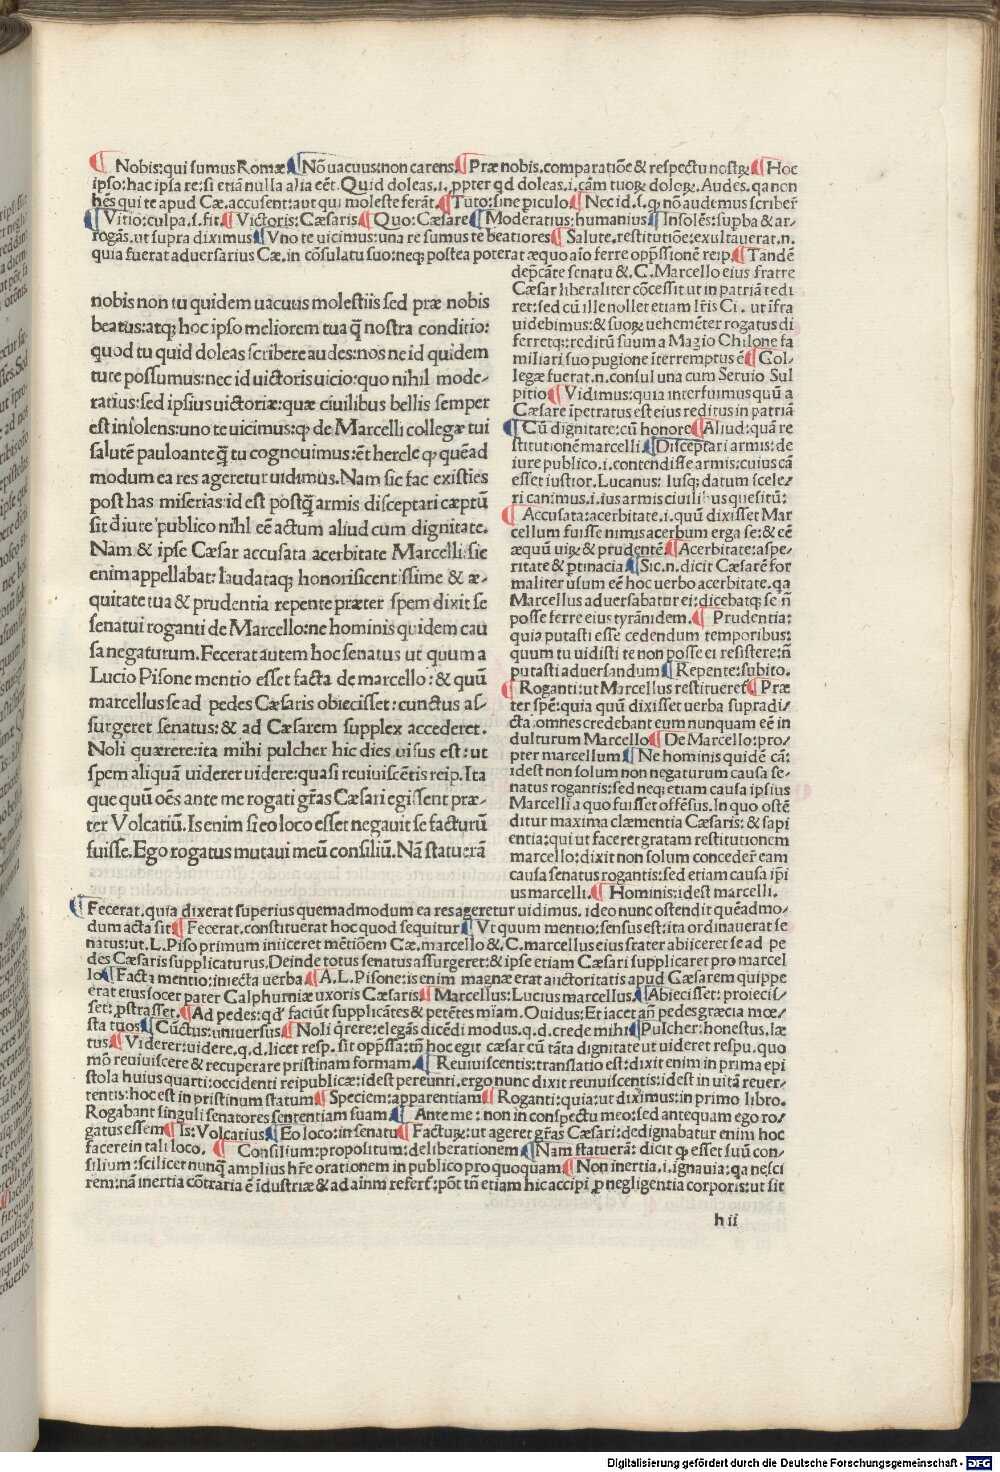 ¶ Nobis: qui sumus Romæ ¶ Nō uacuus: non carens ¶ Præ nobis. comparatiōe & respectu nostꝝ ¶ Hoc
ipso: hac ipsa re: si etiā nulla alia eēt. Quid doleas .i. ꝓpter qd doleas .i. cām tuoꝝ doloꝝ. Audes. qa non
hēs qui te apud Cæ. accusent: aut qui moleste ferāt ¶ Tuto: sine piculo ¶ Nec id .s. ꝙ nō audemus scriber
¶ Vitio: culpa .s. fit ¶ Victoris: Cæsaris ¶ Quo: Cæsare ¶ Moderatius: humanius ¶ Insolēs: supba & ar-
rogās. ut supra diximus ¶ Vno te uicimus: una re sumus te beatiores ¶ Salute. restitutiōe: exultauerat .n.
quia fuerat aduersarius Cæ. in cōsulatu suo: neqꝫ postea poterat æquo aīo ferre opp̄ssionē reip. ¶ Tandē
nobis non tu quidem uacuus molestiis sed præ nobis
beatus: atqꝫ hoc ipso meliorem tua q̄ nostra conditio:
quod tu quid doleas scribere audes: nos ne id quidem
tute possumus: nec id uictoris uicio: quo nihil mode-
ratius: sed ipsius uictoriæ: quæ ciuilibus bellis semper
est insolens: uno te uicimus: ꝙ de Marcelli collegæ tui
salutē pauloante q̄ tu cognouimus: ēt hercle ꝙ quēad
modum ea res ageretur uidimus. Nam sic fac existies
post has miserias: id est postq̄ armis disceptari cæptū
sit d'iure publico nihl eē actum aliud cum dignitate.
Nam & ipse Cæsar accusata acerbitate Marcelli: sic
enim appellabat: laudataqꝫ honorificentissime & æ-
quitate tua & prudentia repente præter spem dixit se
senatui roganti de Marcello: ne hominis quidem cau
sa negaturum. Fecerat autem hoc senatus ut quum a
Lucio Pisone mentio esset facta de marcello: & quū
marcellus se ad pedes Cæsaris obiecisset: cunctus as-
surgeret senatus: & ad Cæsarem supplex accederet.
Noli quærere: ita mihi pulcher hic dies uisus est: ut
spem aliquā uiderer uidere: quasi reuiuiscētis reip. Ita
que quū oēs ante me rogati gr̄as Cæsari egissent præ-
ter Volcatiū. Is enim si eo loco esset negauit se facturū
fuisse. Ego rogatus mutaui meū consiliū. Nā statuerā
dep̄cāte senatu & .C. Marcello eius fratre
Cæsar liberaliter cōcessit ut in patriā redi
ret: sed cū ille nollet etiam lr̄is Ci. ut ifra
uidebimus: & suoꝝ uehemēter rogatus di
ferretqꝫ: reditū suum a Magio Chilone fa
miliari suo pugione īterremptus ē ¶ Col-
legæ fuerat .n. consul una cum Seruio Sul
pitio ¶ Vidimus: quia interfuimus quū a
Cæsare īpetratus est eius reditus in patriā
¶ Cū dignitate: cū honore ¶ Aliud: quā re
stitutionē marcelli ¶ Disceptari armis: de
iure publico .i. contendisse armis: cuius cā
esset iustior. Lucanus: Iusqꝫ datum scele-
ri canimus .i. ius armis ciuilibus quesitū:
¶ Accusata: acerbitate .i. quū dixisset Mar
cellum fuisse nimis acerbum erga se: & eē
æquū uiꝝ & prudentē ¶ Acerbitate: aspe-
ritate & ptinacia ¶ Sic .n. dicit Cæsarē for
maliter usum eē hoc uerbo acerbitate. qa
Marcellus aduersabatur ei: dicebatqꝫ se n̄
posse ferre eius tyrānidem. ¶ Prudentia:
quia putasti esse cedendum temporibus:
quum tu uidisti te non posse ei resistere: n̄
putasti aduersandum ¶ Repente: subito.
¶ Roganti: ut Marcellus restitueret ¶ Præ
ter spē: quia quū dixisset uerba supradi-
cta. omnes credebant eum nunquam eē in
dulturum Marcello ¶ De Marcello: pro-
pter marcellum ¶ Ne hominis quidē cā:
idest non solum non negaturum causa se-
natus rogantis: sed neqꝫ etiam causa ipsius
Marcelli a quo fuisset offēsus. In quo ostē
ditur maxima clæmentia Cæsaris: & sapi
entia: qui ut faceret gratam restitutionem
marcello: dixit non solum conceder eam
causa senatus rogantis: sed etiam causa ip̄i
us marcelli. ¶ Hominis: idest marcelli.
¶ Fecerat. quia dixerat superius quemadmodum ea res ageretur uidimus. ideo nunc ostendit quēadmo-
dum acta sit ¶ Fecerat. constituerat hoc quod sequitur ¶ Vt quum mentio: sensus est: ita ordinauerat se
natus: ut .L. Piso primum iniiceret mētiōem Cæ. marcello & .C. marcellus eius frater abiiceret se ad pe
des Cæsaris supplicaturus. Deinde totus senatus assurgeret: & ipse etiam Cæsari supplicaret pro marcel
lo ¶ Facta mentio: iniecta uerba ¶ A. L. Pisone: is enim magnæ erat auctoritatis apud Cæsarem quippe
erat eius socer pater Calphurniæ uxoris Cæsaris ¶ Marcellus: Lucius marcellus ¶ Abiecisset: proiecis-
set: ꝓstrasset. ¶ Ad pedes: qd' faciūt supplicātes & petētes mīam. Ouidus: Et iacet an̄ pedes græcia mœ-
sta tuos ¶ Cūctus: uniuersus ¶ Noli q̄rere: elegās dicēdi modus .q.d. crede mihi ¶ Pulcher: honestus. læ
tus ¶ Viderer: uidere .q.d. licet resp. sit opp̄ssa: tn̄ hoc egit cæsar cū tāta dignitate ut uideret respu. quo
mō reuiuiscere & recuperare pristinam formam ¶ Reuiuiscentis: translatio est: dixit enim in prima epi
stola huius quarti: occidenti reipublicæ: idest pereunti. ergo nunc dixit reuiuiscentis: idest in uitā reuer-
tentis: hoc est in pristinum statum ¶ Speciem: apparentiam ¶ Roganti: quia: ut diximus: in primo libro.
Rogabant singuli senatores sententiam suam ¶ Ante me: non in conspectu meo: sed antequam ego ro-
gatus essem ¶ Is: Volcatius ¶ Eo loco: in senatu ¶ Factuꝝ: ut ageret gr̄as Cæsari: dedignabatur enim hoc
facere in tali loco. ¶ Consilium: propositum: deliberationem ¶ Nam statuerā: dicit ꝙ esset suū con-
silium: scilicet nunq̄ amplius hr̄e orationem in publico pro quoquam ¶ Non inertia .i. ignauia: qa nesci
rem: nā inertia cōtraria ē īdustriæ & ad aīnm refert: pōt tn̄ etiam hic accipi ꝓ negligentia corporis: ut sit
h ii
Digitalisierung gefördert durch die Deutsche Forschungsgemeinschaft - DFG